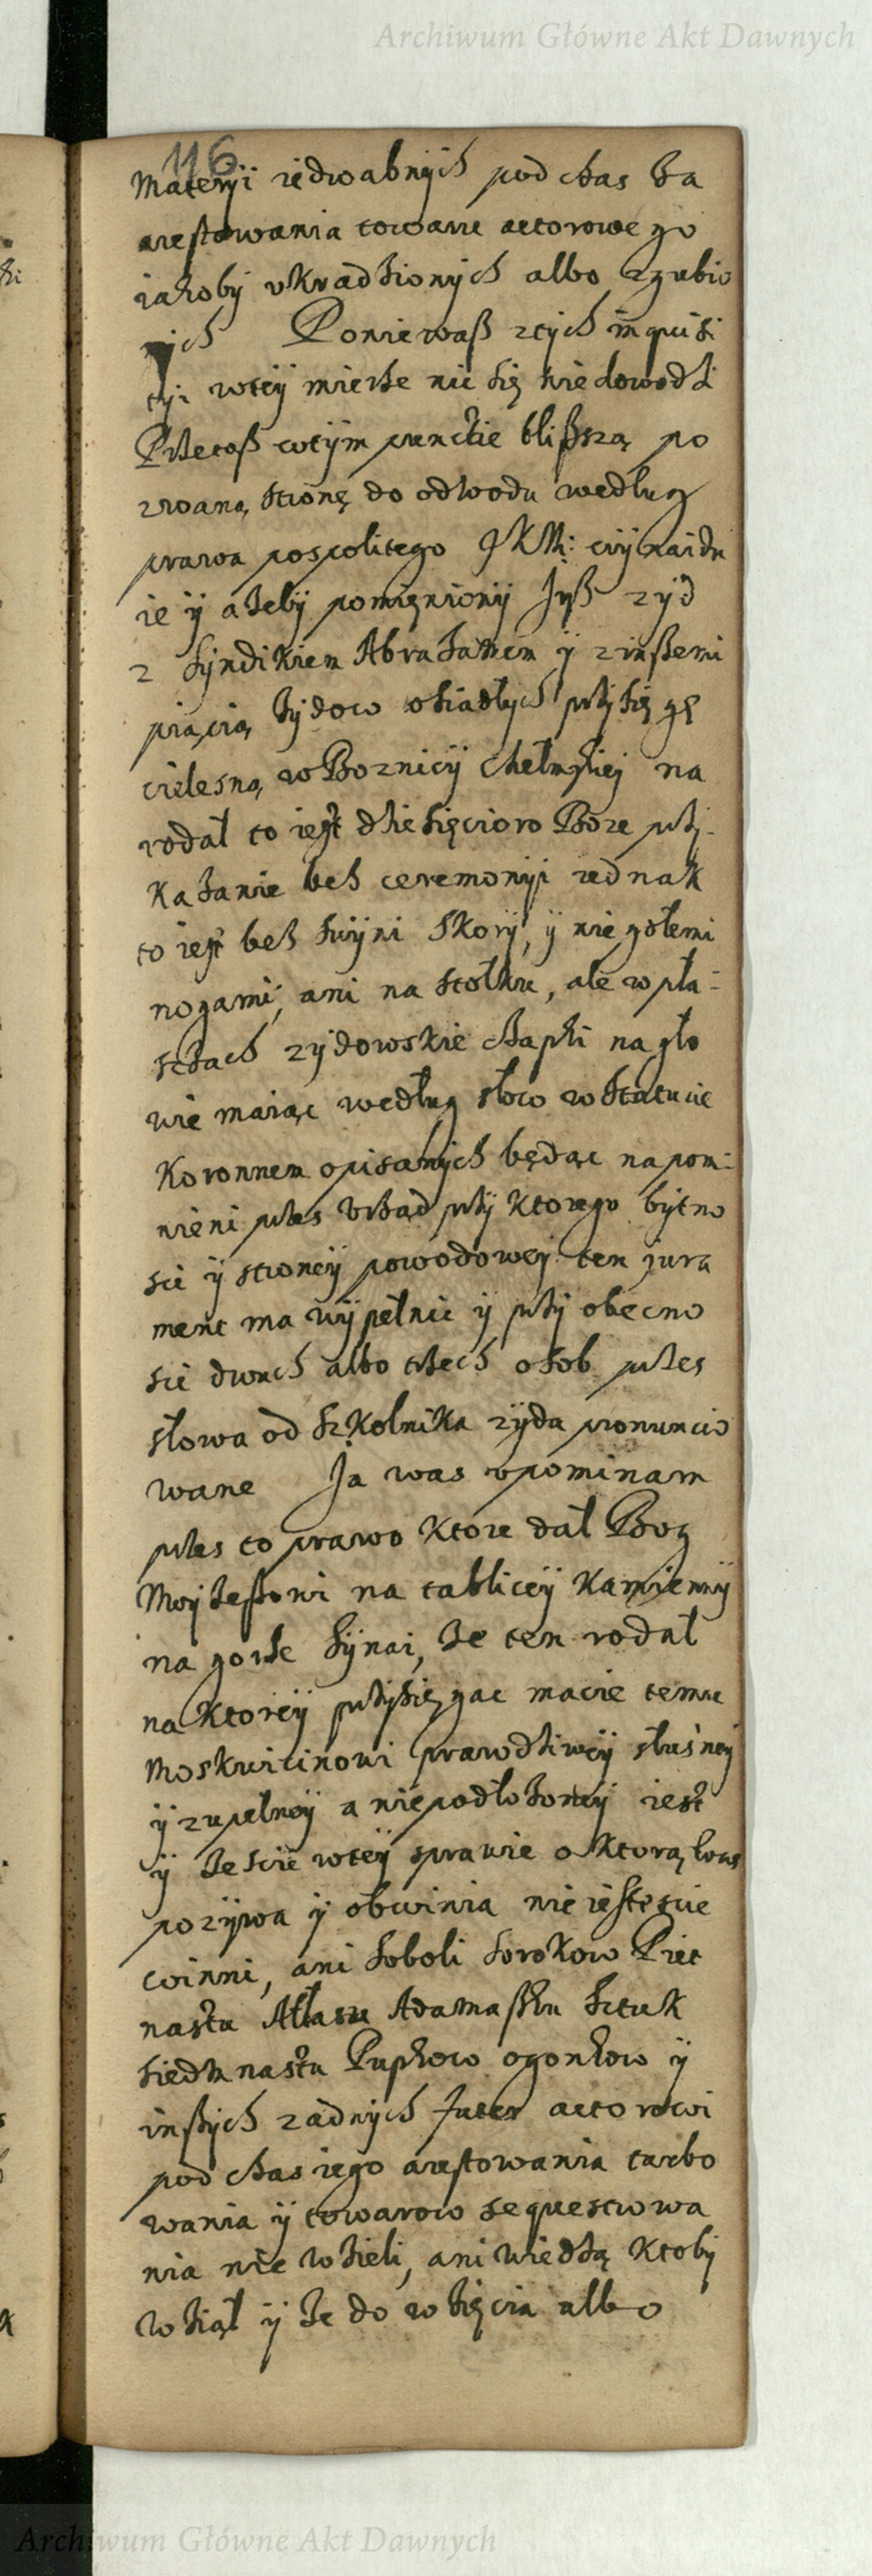 Archiwum Główne Akt Dawnych
116
Materyi iedwabnych pod czas za
arestowania towaru actorowego
iakoby vkradzionych albo zgubio
nych Poniewaß ztych inquisi
tyi wtey mierze nic się nie dowodzi
Przetoß wtym punckcie blißszą po
zwaną stronę do odwodu według
prawa pospolitego JKM: wynaidu
ie y ażeby pomięniony Jyß zyd
z Syndikiem Abrahamem y z inßemi
piącią żydow osiadłych przysięgę
cielesną w Boznicy Chełmskiey na
rodał to iest dziesięcioro Boże przy-
kazanie bez ceremonyi iednak
to iest bez swyni skory, y nie gołemi
nogami, ani na stołku, ale w pła-
szczach zydowskie czapki na gło
wie maiąc według słow w Statucie
Koronnem opisanych będąc napom-
nieni przes Vrząd przy ktorego bytno
sci y strony powodowey ten jura
ment ma wypełnic y przy obecno
sci dwuch albo trzech osob przes
słowa od Szkolnika zyda pronuncio
wane Ja was vpominam
przes to prawo ktore dał Bog
Moyżeßowi na tablicy kamienny
na gorze Synai, że ten rodał
na ktorey przysięgac macie temu
Moskwicinowi prawdziwey słusney
y zupełney a niepodłożoney iest
y żescie wtey sprawie o ktorą was
pozywa y obwinia nie iestescie
winni, ani soboli sorokow Piet
nastu Atłasu Adamaßku sztuk
siedmnastu Pupkow ogonkow y
inßych zadnych futer actorowi
pod czas iego arestowania turbo
wania y towarow sequestrowa
nia nie wzieli, ani wiedzą ktoby
wział y że do wzięcia albo
Archiwum Główne Akt Dawnych